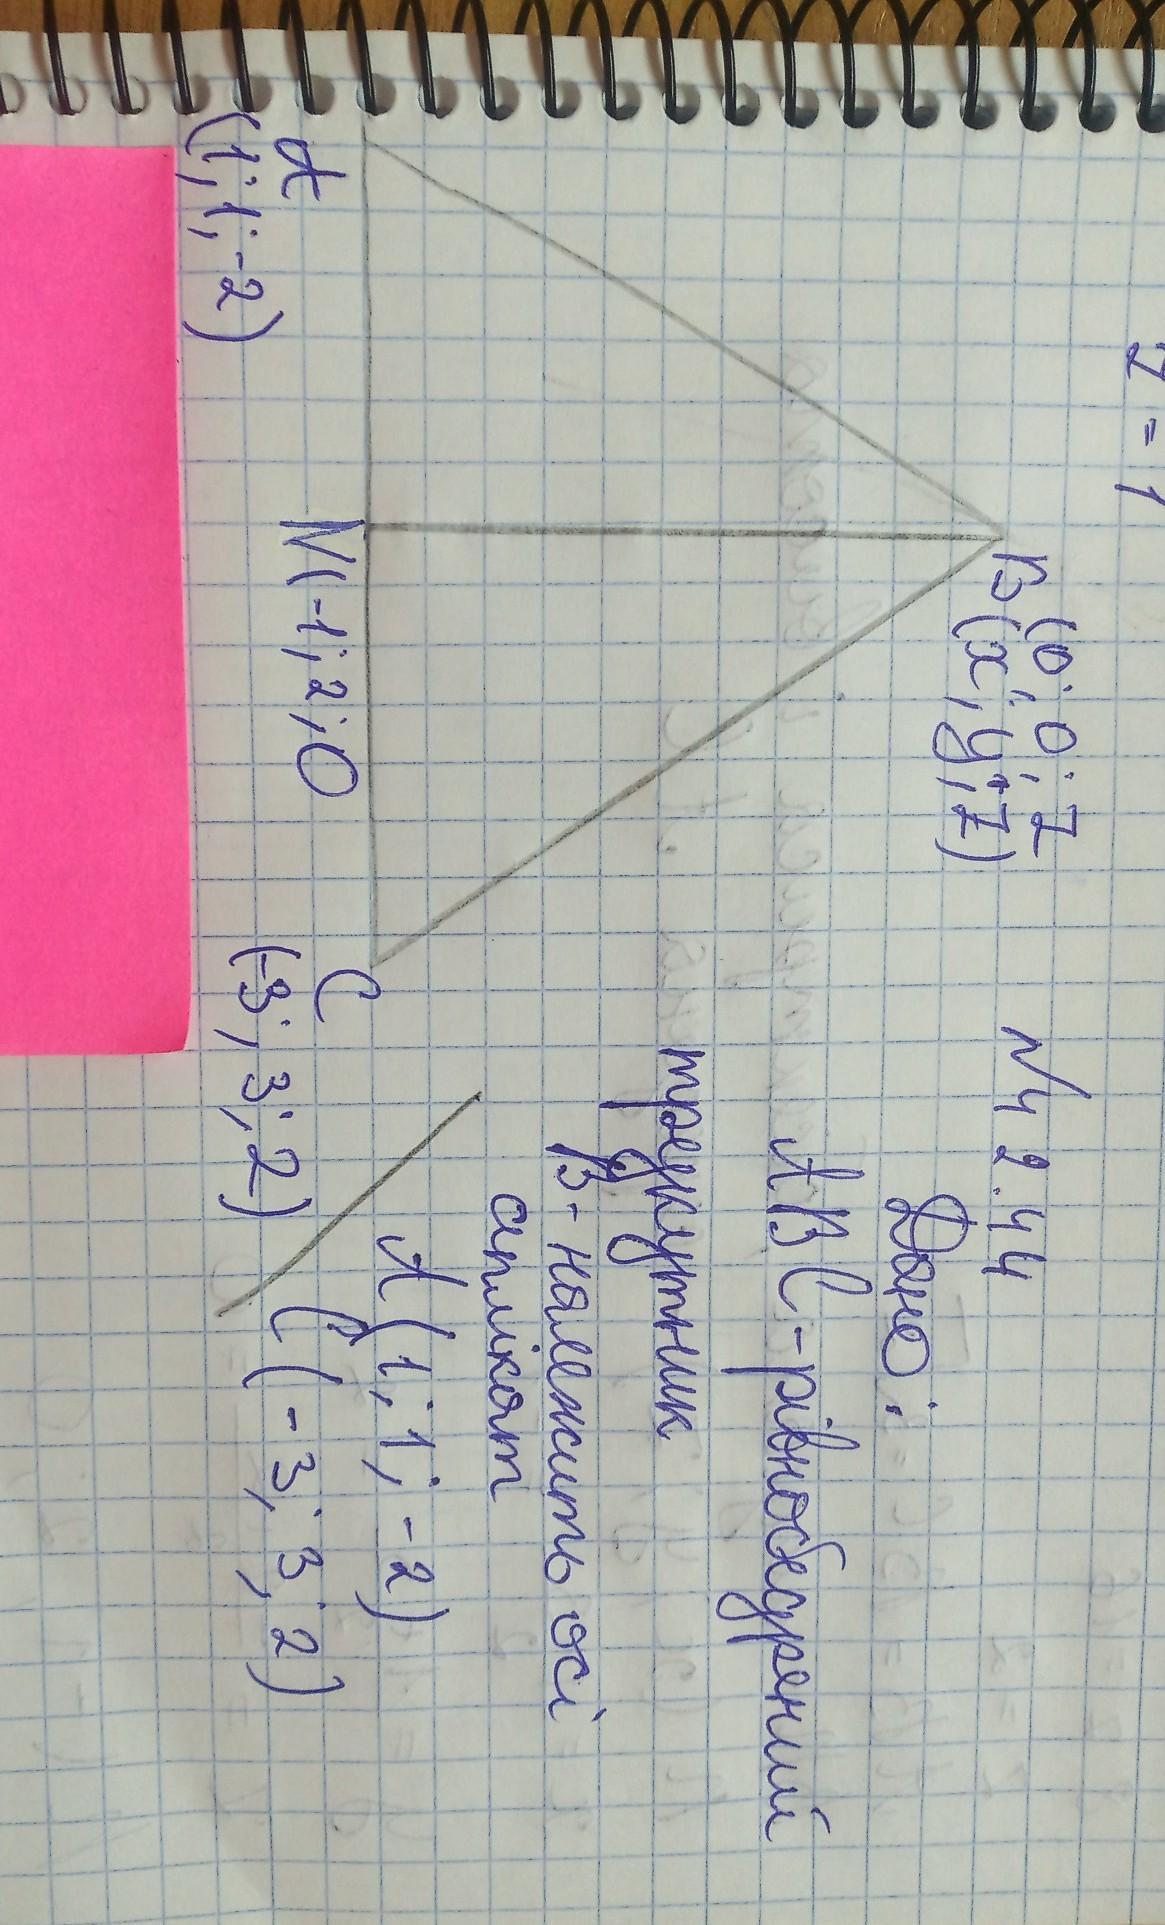 Z = 1
N 42.44
Дано:
ABC - рівнобедрений
трикутник
B - належить осі
аплікат
A (1; 1; -2)
C (-3; 3; 2)
(0; 0; Z
B (x; y; Z)
A
(1; 1; -2)
N (-1; 2; 0
C
(-3; 3; 2)